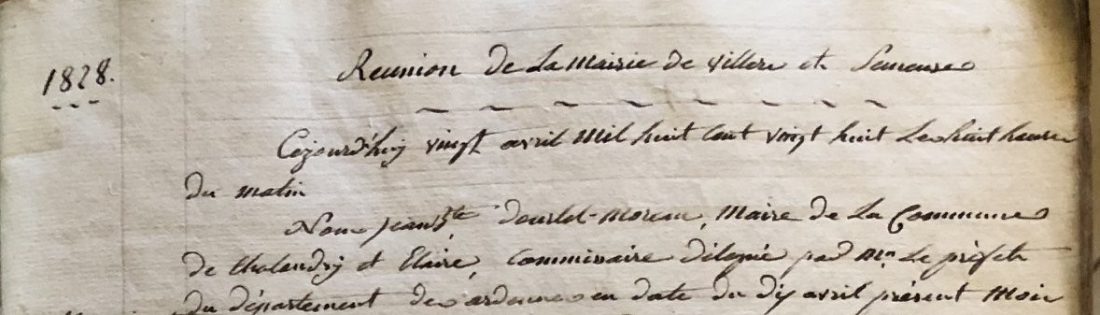 1828.
Reunion de La Mairie de Villers et Semeuse
Cejourd'huy vingt avril Mil huit Cent vingt huit Le huit heures
du matin
Nous jean Bte Dourlet-Moreau, Maire de La Commune
de Chalandry et Elaire, Commissaire délégué par Mr. Le préfet
du département des ardennes en date du dix avril présent Mois